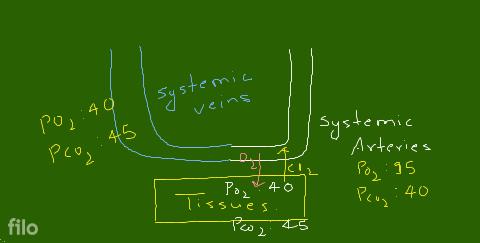 Systemic
veins
PO₂: 40
PCO₂: 45
Systemic
Arteries
PO₂: 95
PCO₂: 40
O₂
CO₂
PO₂ 40
Tissues.
PCO₂: 45
filo